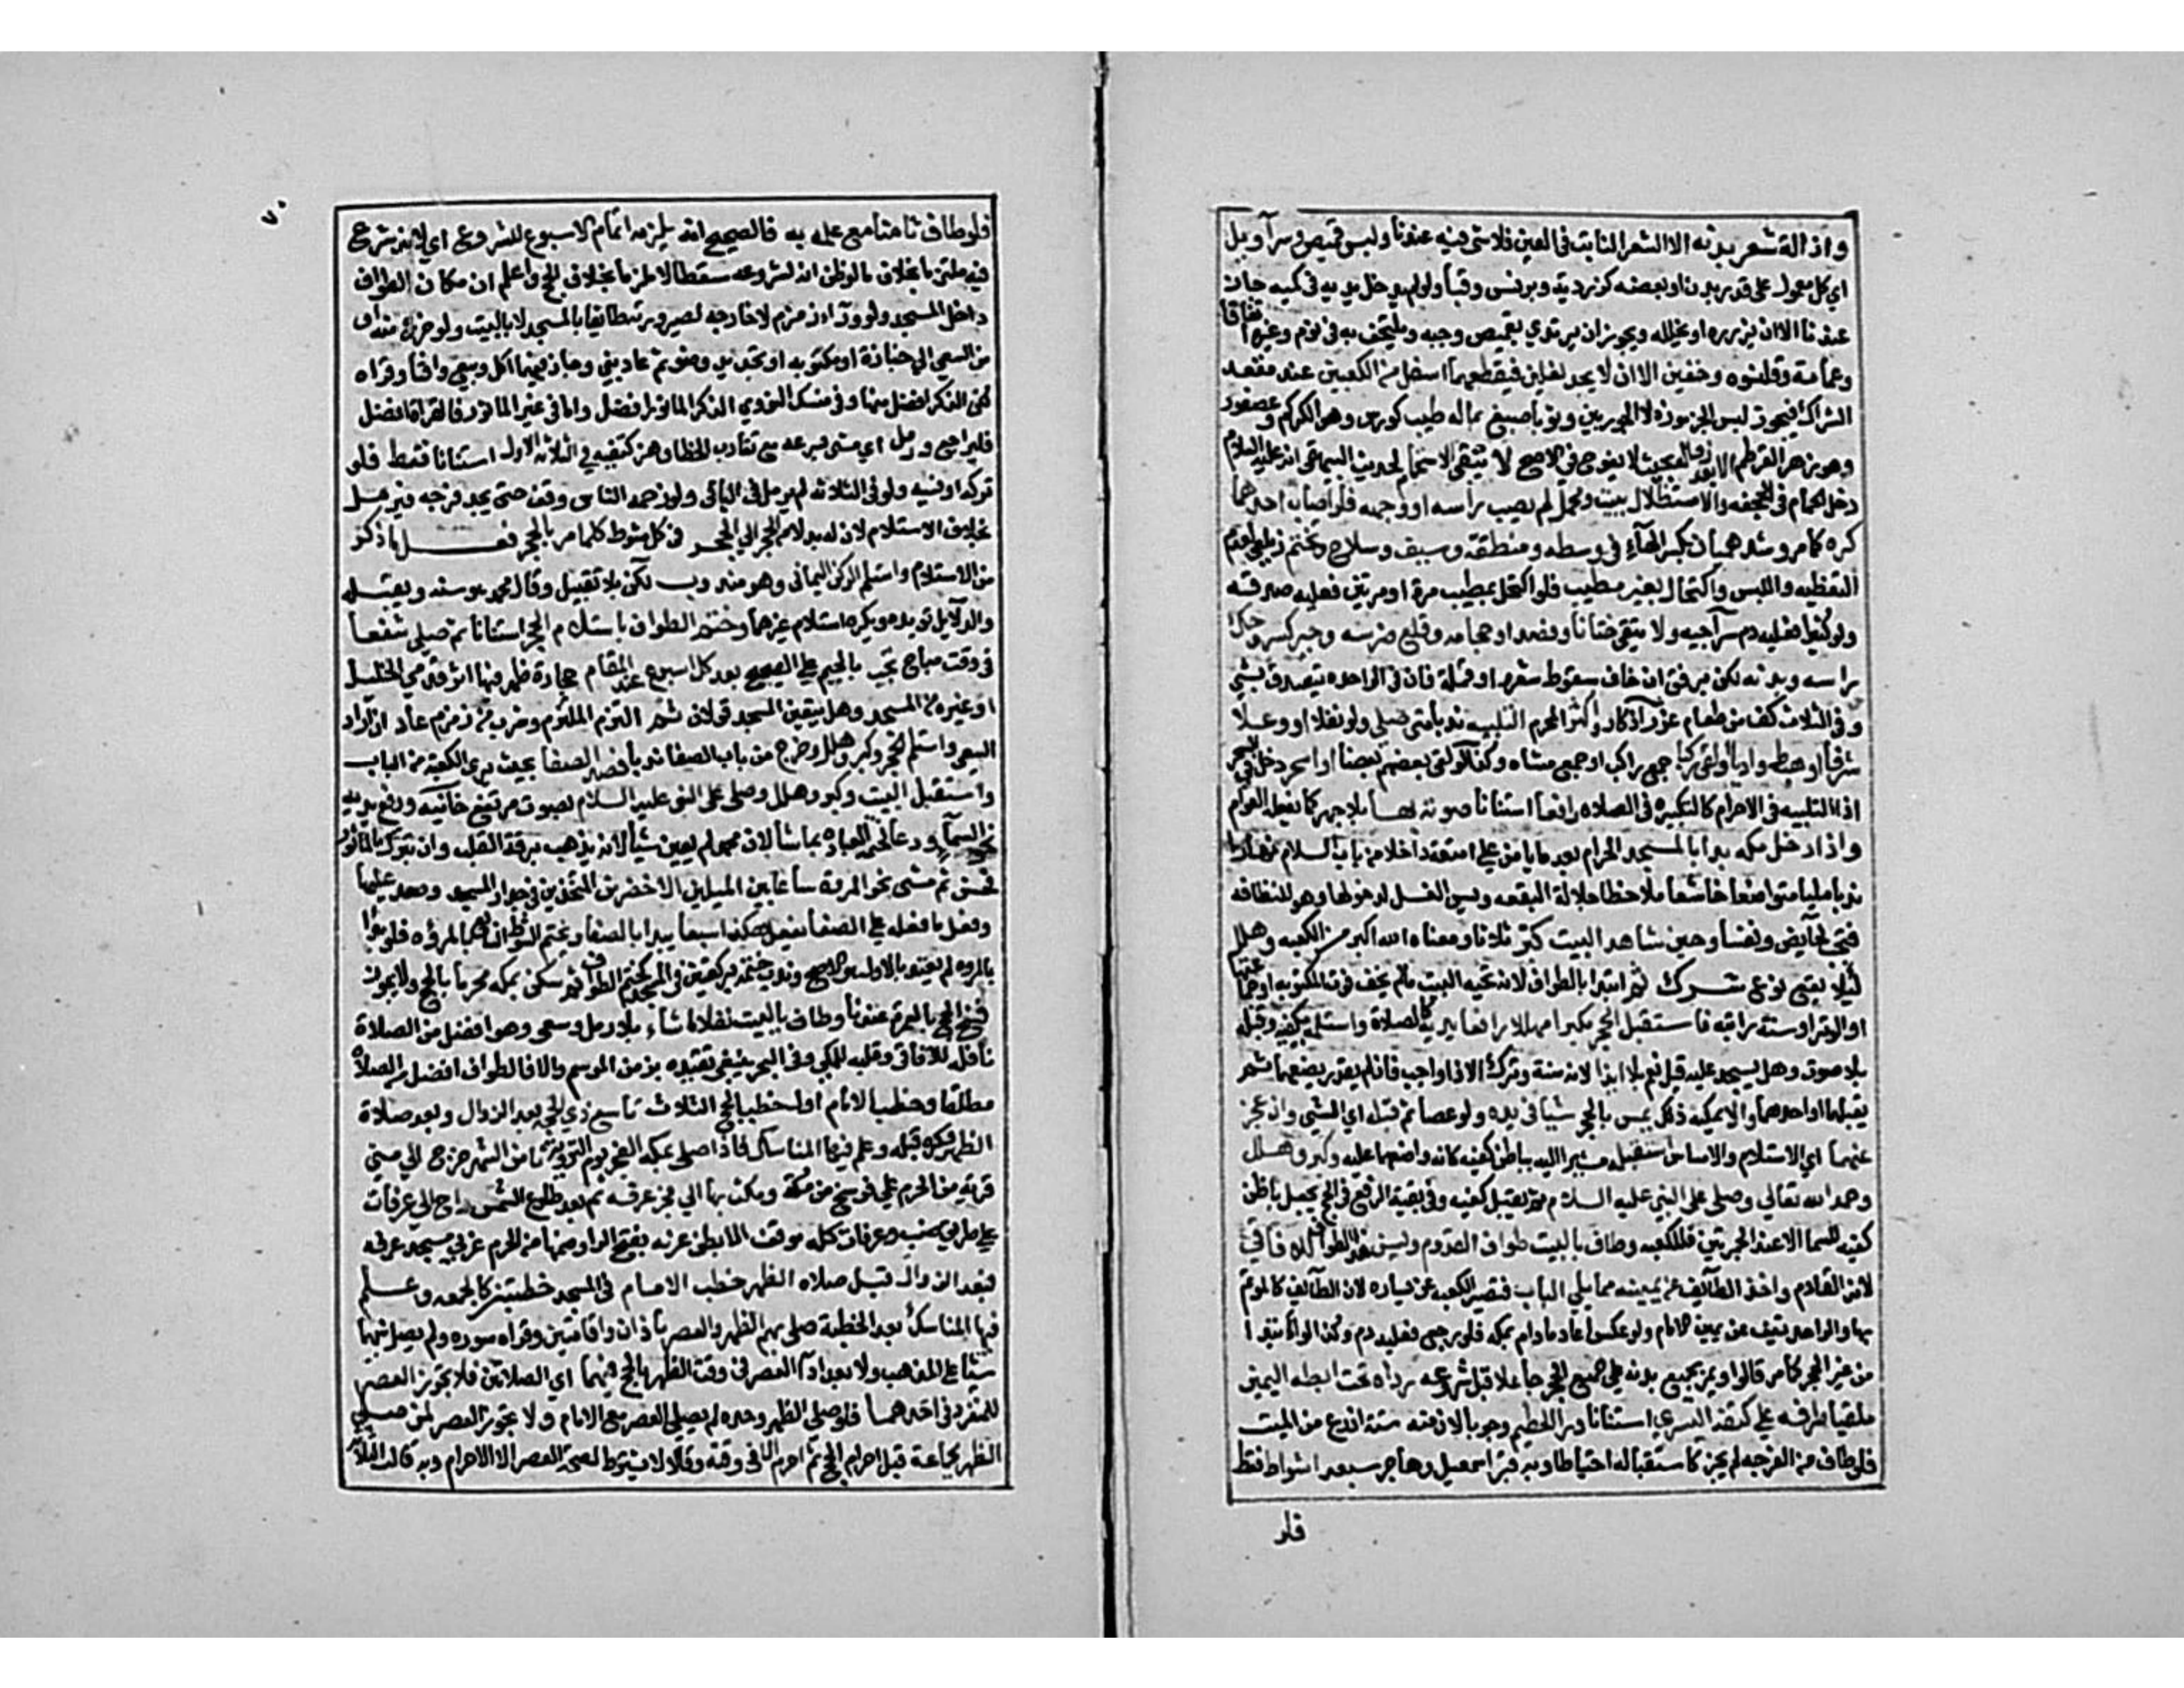 وازالة شعر بدنه الا الشعر النابت في العين فلا شي فيه عندنا ولبس قميص وسراويل
اي كل معمول على قدر بدن او بعضه كزردية وبرنس وقبا ولو لم يدخل يديه في كميه جاز
عندنا الا ان يزرره او يخلله ويجوز ان يرتدي بقميص وجبه ويلتحف به في نوم وغيره اتفاقا
وعمامة وقلنسوه وخفين الا ان لا يجد نعلين فيقطعهما اسفل من الكعبين عند معقد
الشراك فيجوز لبس الزرموزه لا الجوربين وثوبا صبغ بما له طيب كورس وهو الكركم وعصفور
وهو زهر القرطم الا بعد زواله بحيث لا يفوح في الاصح لا يتقي الاستحمام لحديث البيهقي انه عليه السلام
دخل الحمام في الجحفه والاستظلال ببيت ومحمل لم يصب راسه او وجهه فلو اصاب احدهما
كره كما مر وشد هميان بكسر الهآء في وسطه ومنطقة وسيف وسلاح وتختم زيلعي لعدم
التغطيه واللبس واكتحال بغير مطيب فلو اكتحل بمطيب مرة او مرتين فعليه صدقه
ولو كثيرا فعليه دم سراجيه ولا يتقي ختانا وفصدا وحجامه وقلع ضرسه وجبر كسر وحك
راسه وبدنه لكن برفق ان خاف سقوط شعره او قملة فان في الواحده يتصدق بشي
وفي الثلاث كف من طعام غرر آذكار واكثر المحرم التلبيه ندبا متى صلى ولو نفلا او علا
شرفا او هبط واديا او لقي ركبا جمع راكب او جمع مشاه وكذا لو لقي بعضهم بعضا او اسحر دخل في السحر
اذ التلبيه في الاحرام كالتكبير في الصلاه رافعا استنانا صوته بها بلا جهد كما يفعله العوام
واذا دخل مكه بدا بالمسجد الحرام بعد ما يامن على امتعته داخلا من باب السلام نهارا
ندبا ملبيا متواضعا خاشعا ملاحظا جلالة البقعه ويسن الغسل لدخولها وهو للنظافه
فيجب لحايض ونفسا وحين شاهد البيت كبر ثلاثا ومعناه الله اكبر من الكعبه وهلل
لئلا يقع نوع شرك ثم ابتدا بالطواف لانه تحيه البيت ما لم يخف فوت المكتوبه او جماعتها
او الوتر او سنة راتبه فاستقبل الحجر مكبرا مهللا رافعا يديه كالصلاة واستلمه بكفيه وقبله
بلا صوت وهل يسجد عليه قيل نعم بلا ايذا لانه سنة وترك الاذا واجب فان لم يقدر يضعهما ثم
يقبلهما او احدهما والا يمكنه ذلك يمس بالحجر شيا في يده ولو عصا ثم قبله اي الشي وان عجز
عنهما اي الاستلام والامساس استقبله مشيرا اليه بباطن كفيه كانه واضعهما عليه وكبر وهلل
وحمد الله تعالي وصلى على النبي عليه السلام ثم يقبل كفيه وفي بقية الرفع في الحج يجعل باطن
كفيه للسما الا عند الجمرتين فللكعبه وطاف بالبيت طواف القدوم ويسن هذا الطواف للافاقي
لانه القادم واخذ الطائف عن يمينه مما يلي الباب فتصير الكعبه عن يساره لان الطائف كالموتم
بها والواحد يقف عن يمين الامام ولو عكس اعاد ما دام بمكه فلو رجع فعليه دم وكذا لو ابتدا
من غير الحجر كما مر قالوا ويمر بجميع بدنه على جميع الحجر جاعلا قبل شروعه رداه تحت ابطه اليمنى
ملقيا طرفه على كتفه اليسري استنانا ورا الحطيم وجوبا لان منه ستة اذرع من البيت
فلو طاف من الفرجه لم يجز كاستقباله احتياطا وبه قبر اسمعيل وهاجر سبعة اشواط فقط
فلو
٧٠
فلو طاف ثامنا مع علمه به فالصحيح انه يلزمه اتمام الاسبوع للشروع اي لانه شرع
فيه ملتزما بخلاف ما لو ظن انه لشروعه مسقطا لا ملزما بخلاف الحج واعلم ان مكان الطواف
داخل المسجد ولو ورآء زمزم لا خارجه لصيرورته طائفا بالمسجد لا بالبيت ولو خرج منه او
من السعي الى جنازة او مكتوبه او تجديد وضو ثم عاد بني وجاز فيهما اكل وبيع وافتا وقراه
لكن الذكر افضل منها وفي منسك النووي الذكر الماثور افضل واما في غير الماثور فالقراة افضل
فليراجع ورمل اي مشى بسرعه مع تقارب الخطا وهز كتفيه في الثلاثه الاول استنانا فقط فلو
تركه او نسيه ولو في الثلاثه لم يرمل في الباقي ولو زحمه الناس وقف حتى يجد فرجه فيرمل
بخلاف الاستلام لان له بدلا من الحجر الي الحجر في كل شوط كلما مر بالحجر فعل ما ذكر
من الاستلام واستلم الركن اليماني وهو مندوب لكن بلا تقبيل وقال محمد هو سنه ويقبله
والدلايل تويده ويكره استلام غيرهما وختم الطواف باستلام الحجر استنانا ثم صلى شفعا
في وقت مباح يجب بالجيم على الصحيح بعد كل اسبوع عند المقام حجارة ظهر فيها اثر قدمي الخليل
او غيره من المسجد وهل يتعين المسجد قولان ثم التزم الملتزم وشرب من زمزم عاد ان اراد
السعي واستلم الحجر وكبر وهلل وخرج من باب الصفا ندبا فصعد الصفا بحيث يري الكعبة من الباب
واستقبل البيت وكبر وهلل وصلى على النبي عليه السلام بصوت مرتفع خانيه ورفع يديه
نحو السمآء ودعا لختمه العباده بما شا لان محمدا لم يعين شيا لانه يذهب برقة القلب وان تبرك بالماثور
فحسن ثم مشى نحو المروة ساعيا بين الميلين الاخضرين المتخذين في جدار المسجد وصعد عليها
وفعل ما فعله على الصفا يفعل هكذا سبعا يبدا بالصفا ويختم الشوط السابع بالمروه فلو بدا
بالمروه لم يعتد بالاول هو الاصح وندب ختمه بركعتين في المسجد كختم الطواف ثم سكن بمكه محرما بالحج ولا يجوز
فسخ الحج بالعمرة عندنا وطاف بالبيت نفلا ما شاء بلا رمل وسعي وهو افضل من الصلاة
نافلة للافاقي وقلبه للمكي وفي البحر ينبغي تقييده بزمن الموسم والا فالطواف افضل من الصلاه
مطلقا وخطب الامام اولى خطب الحج الثلاث سابع ذي الحجه بعد الزوال وبعد صلاة
الظهر وكره قبله وعلم فيها المناسك فاذا صلى بمكه الفجر يوم التروية ثامن الشهر خرج الي منى
قرية من الحرم على فرسخ من مكة ومكث بها الي فجر عرفه ثم بعد طلوع الشمس راح الي عرفات
على طريق ضب وعرفات كله موقف الا بطن عرنه بفتح الرا وضمها من الحرم غربي مسجد عرفه
فبعد الزوال قبل صلاه الظهر خطب الامام في المسجد خطبتين كالجمعه وعلم
فيها المناسك وبعد الخطبة صلى بهم الظهر والعصر باذان واقامتين وقراه سوره ولم يصل بينهما
شيا على المذهب ولا بعد ادآء العصر في وقت الظهر بالحج فيهما اي الصلاتين فلا تجوز العصر
للمنفرد في احدهما فلو صلى الظهر وحده لم يصلي العصر مع الامام ولا يجوز العصر لمن صلى
الظهر بجماعة قبل احرام الحج ثم احرم الا في وقته وقالا لا يشترط لصحة العصر الا الاحرام وبه قالت الثلاثه